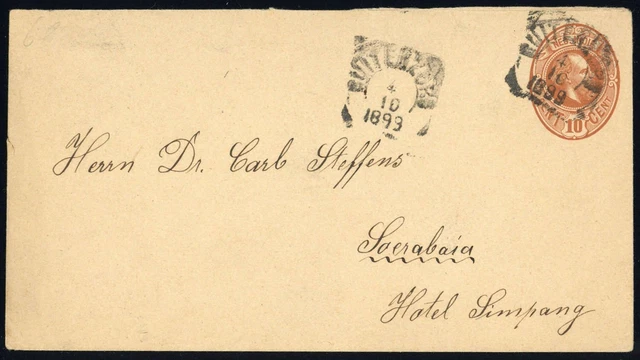 BUITENZORG
4
10
1899
BUITENZORG
4
10
1899
10 CENT
Herrn Dr. Carl Steffens
Soerabaia
Hotel Simpang